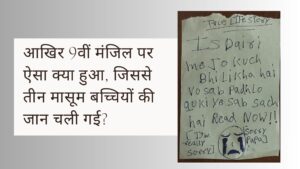 आखिर 9वीं मंजिल पर
ऐसा क्या हुआ, जिससे
तीन मासूम बच्चियों की
जान चली गई?
True life story
Is Dairi
me Jo kuch
Bhi likha hai
vo sab Padhlo
quki vo sab sach
hai Read Now!!
[I'm really sorry]
[Sorry Papa]